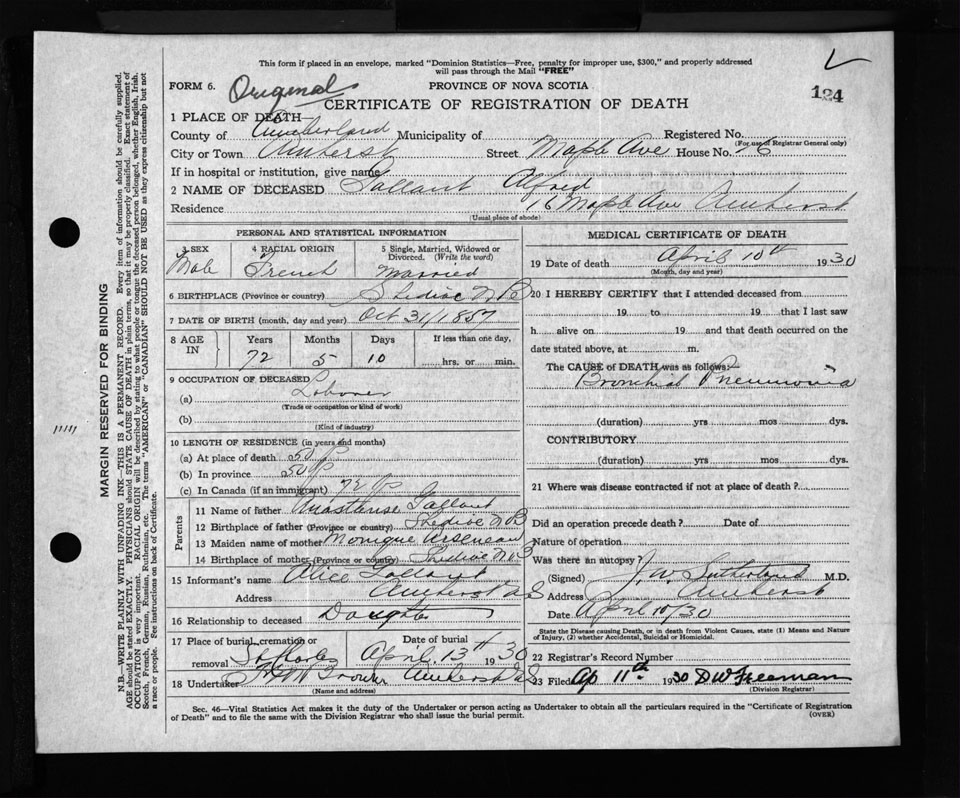 This form if placed in an envelope, marked "Dominion Statistics—Free, penalty for improper use, $300," and properly addressed
will pass through the Mail "FREE"
FORM 6. Original PROVINCE OF NOVA SCOTIA
CERTIFICATE OF REGISTRATION OF DEATH 124
1 PLACE OF DEATH—
County of Cumberland Municipality of Registered No.
(For use of Registrar General only)
City or Town Amherst Street Maple Ave House No. 6
If in hospital or institution, give name
2 NAME OF DECEASED Gallant Alfred
Residence 16 Maple Ave Amherst
(Usual place of abode)
PERSONAL AND STATISTICAL INFORMATION
3 SEX 4 RACIAL ORIGIN 5 Single, Married, Widowed or
Divorced. (Write the word)
Male French Married
6 BIRTHPLACE (Province or country) Shediac N B
7 DATE OF BIRTH (month, day and year) Oct 31/1857
8 AGE IN Years Months Days If less than one day,
72 5 10 hrs. or min.
9 OCCUPATION OF DECEASED
(a) Laborer
(Trade or occupation or kind of work)
(b)
(Kind of industry)
10 LENGTH OF RESIDENCE (in years and months)
(a) At place of death 50
(b) In province 50
(c) In Canada (if an immigrant) 72
Parents
11 Name of father Gallant
12 Birthplace of father (Province or country) Shediac N B
13 Maiden name of mother Monique Arseneau
14 Birthplace of mother (Province or country) Shediac N B
15 Informant's name Alice Gallant
Address Amherst N S
16 Relationship to deceased Daughter
17 Place of burial, cremation or removal St Charles Date of burial April 13th 1930
18 Undertaker Amherst N S
(Name and address)
MEDICAL CERTIFICATE OF DEATH
19 Date of death April 10th 1930
(Month, day and year)
20 I HEREBY CERTIFY that I attended deceased from
19 to 19 that I last saw
h alive on 19 and that death occurred on
date stated above, at m.
The CAUSE of DEATH was as follows:
Bronchial Pneumonia
(duration) yrs mos dys.
CONTRIBUTORY
(duration) yrs mos dys.
21 Where was disease contracted if not at place of death?
Did an operation precede death? Date of
Nature of operation
Was there an autopsy?
(Signed) J. W Sutherland M.D.
Address Amherst
Date April 10/30
State the Disease causing Death, or in death from Violent Causes, state (1) Means and Nature
of Injury, (2) whether Accidental, Suicidal or Homicidal.
22 Registrar's Record Number
23 Filed Ap 11th 1930 D W Freeman
(Division Registrar)
Sec. 46—Vital Statistics Act makes it the duty of the Undertaker or person acting as Undertaker to obtain all the particulars required in the "Certificate of Registration
of Death" and to file the same with the Division Registrar who shall issue the burial permit. (OVER)
MARGIN RESERVED FOR BINDING
N.B.—WRITE PLAINLY WITH UNFADING INK—THIS IS A PERMANENT RECORD. Every item of information should be carefully supplied.
AGE should be stated EXACTLY. PHYSICIANS should STATE CAUSE OF DEATH in plain terms, so that it may be properly classified. Exact statement of
OCCUPATION is very important. RACIAL ORIGIN will be described by stating to what people or tongue the deceased person belonged, whether English, Irish,
Scotch, French, German, Russian, Ruthenian, etc. The terms "AMERICAN" or "CANADIAN" SHOULD NOT BE USED as they express citizenship but not
a race or people. See instructions on back of Certificate.